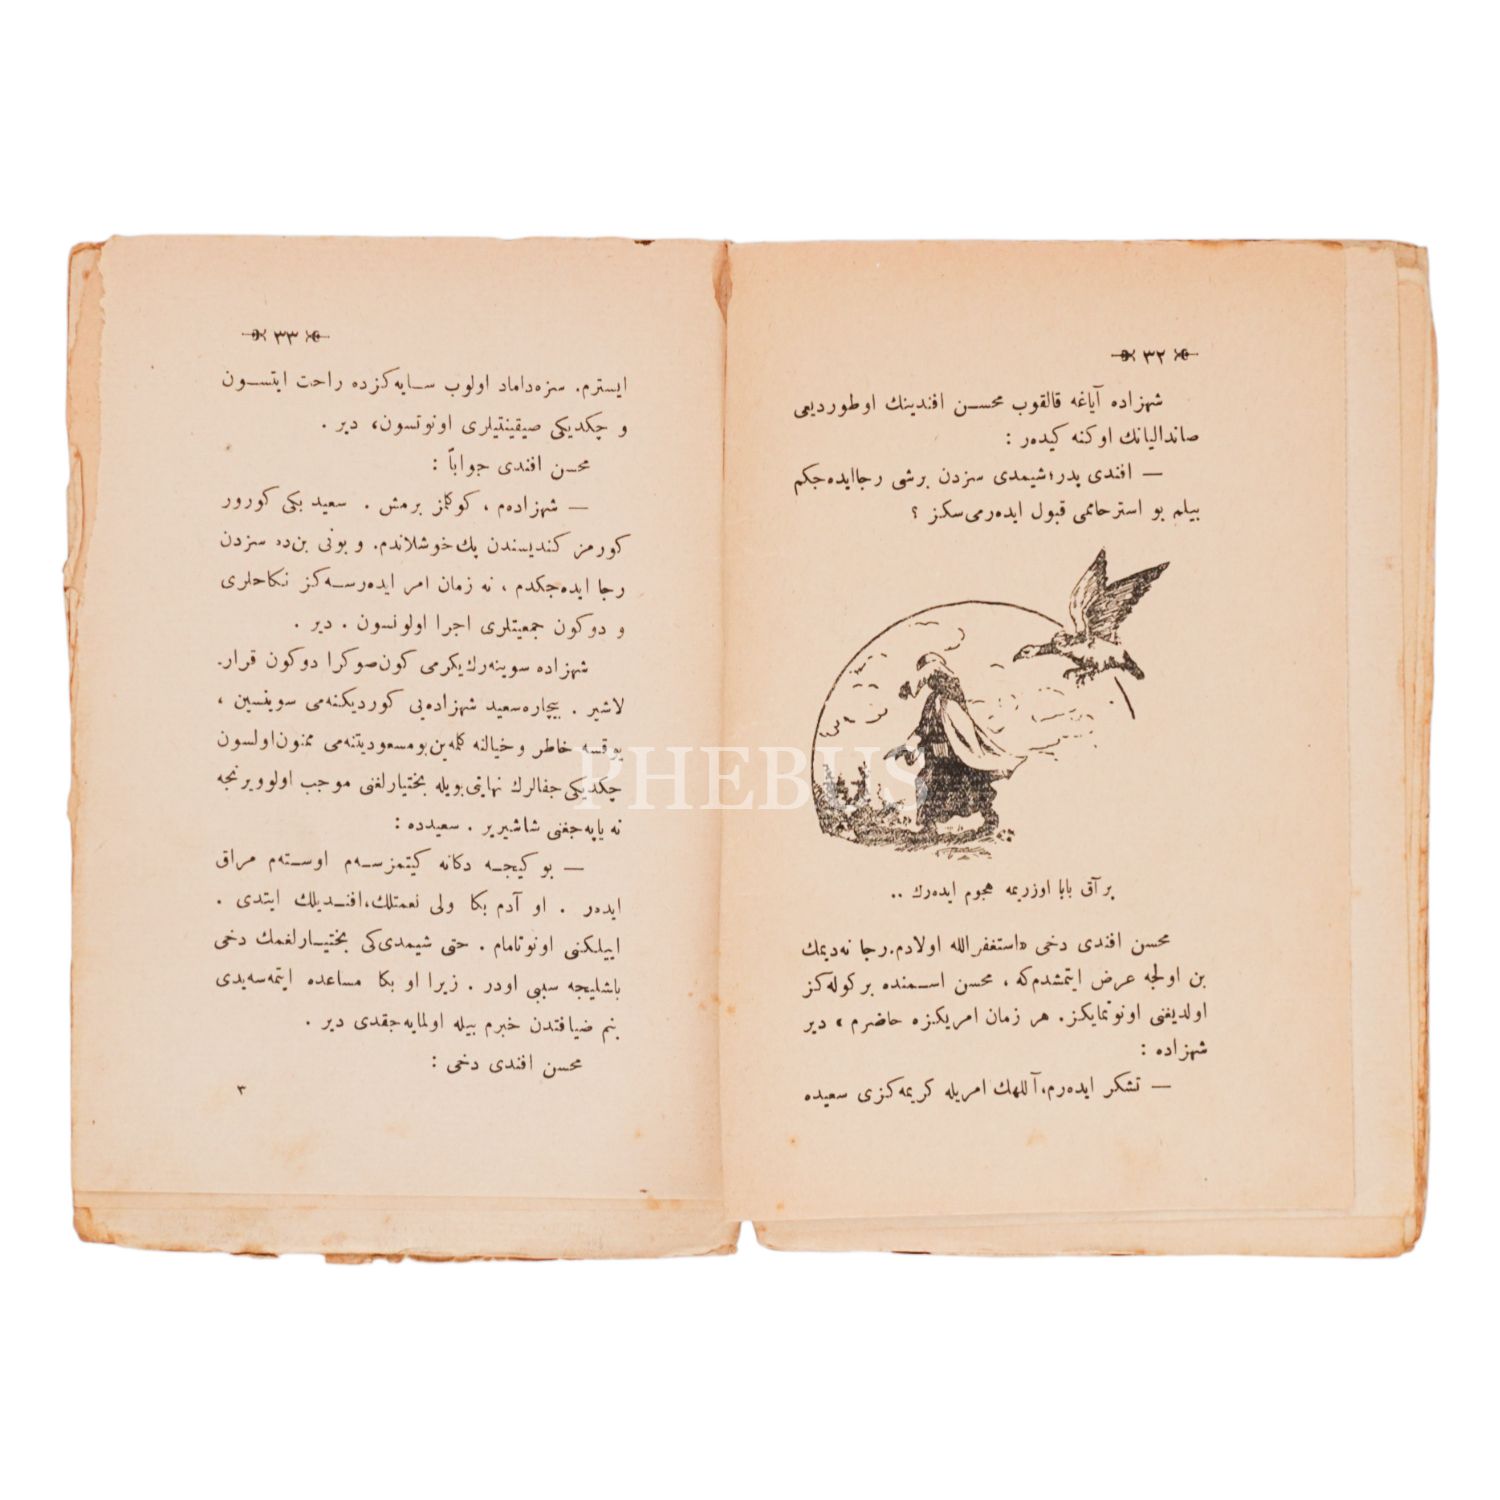 ٣٢
شهزاده آياغه قالقوب محسن افندينك اوطورديغی
صانداليانك اوكنه كيدهر :
— افندی پدر؛ شيمدی سزدن برشی رجا ايده‌جكم
بيلم بو استرحاممی قبول ايدەرمی‌سكز ؟
بر آق بابا اوزريمه هجوم ايدەرك ..
محسن افندی دخی «استغفرالله اولادم. رجا نه‌ديمك
بن اولجه عرض ايتمشدم‌كه ، محسن اسمنده بر كوله‌كز
اولديغنی اونوتمايكز. هر زمان امريكزه حاضرم » دير
شهزاده :
— تشكر ايدەرم، آللهك امريله كريمه‌كزی سعيده
٣٣
ايسترم. سزه داماد اولوب سايه‌كزده راحت ايتسون
و چكديكی صيقينتيلری اونوتسون» دير .
محسن افندی جواباً :
— شهزاده‌م ، كوكلمز برمش . سعيد بكی كورور
كورمز كنديسندن پك خوشلاندم. و بونی بن‌ده سزدن
رجا ايده‌جكدم ، نه زمان امر ايدەرسه‌كز نكاحلری
و دوكون جمعيتلری اجرا اولونسون . دير .
شهزاده سوينه‌رك يكرمی كون صوكرا دوكون قرار.
لاشير . بيچاره سعيد شهزاده‌يی كورديكنه‌می سوينسين ،
يوقسه خاطر و خيالنه كلمه‌ين بو مسعوديتنه‌می ممنون اولسون
چكديكی جفالرك نهايتی بويله بختيارلغنی موجب اولوويرنجه
نه ياپه‌جغنی شاشيرير . سعيدده :
— بو كيجه دكانه كيتمزسه‌م اوسته‌م مراق
ايدەر . او آدم بكا ولی نعمتلك، افنديلك ايتدی .
اييلكنی اونوتامام . حتی شيمدی‌كی بختيارلغمك دخی
باشليجه سببی اودر . زيرا او بكا مساعده ايتمه‌سه‌يدی
بنم ضيافتدن خبرم بيله اولمايه‌جقدی دير .
محسن افندی دخی :
٣
PHEBUS